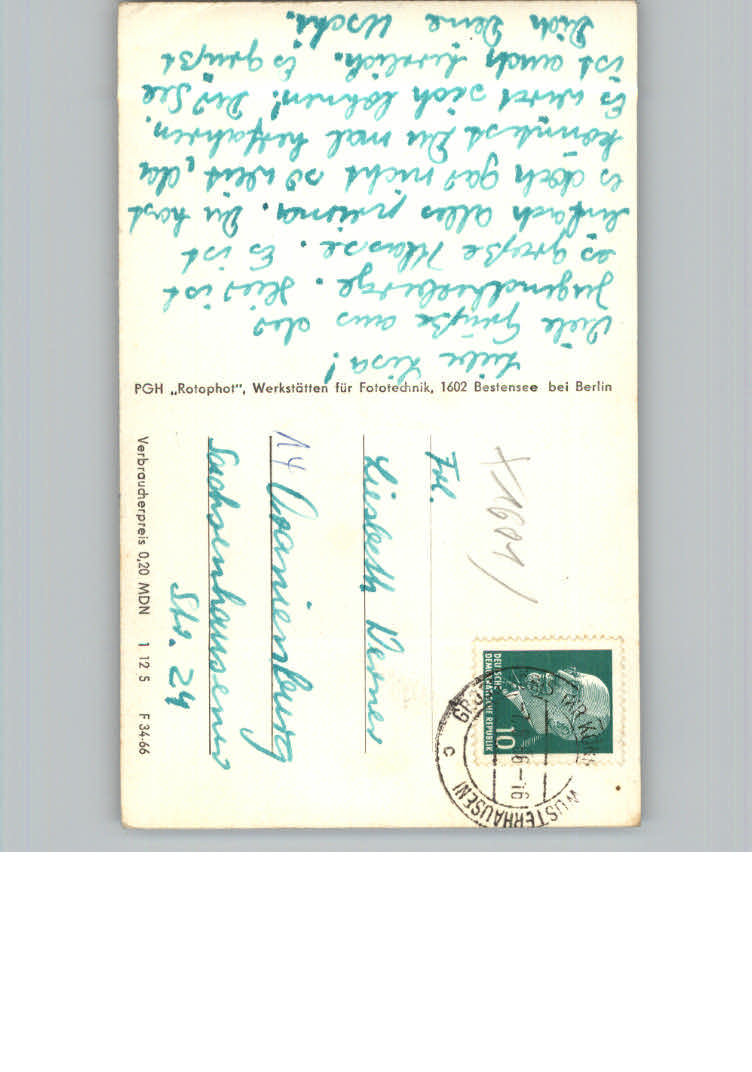 Liebe Lisa!
Viele Grüße aus der
Jugendherberge. Hier ist
es große Klasse. Es ist
einfach alles prima. Du hast
es doch gar nicht so weit, da
könntest Du mal herfahren.
Es wird sich lohnen! Der See
ist auch herrlich. Es grüßt
Dich Deine Uschi.
PGH „Rotophot“, Werkstätten für Fototechnik, 1602 Bestensee bei Berlin
1601
Frl.
Liesbeth Werner
14 Oranienburg
Sachsenhausener
Str. 24
Verbraucherpreis 0,20 MDN 1 12 5 F 34-66
DEUTSCHE
DEMOKRATISCHE REPUBLIK
10
WUSTERHAUSEN
c